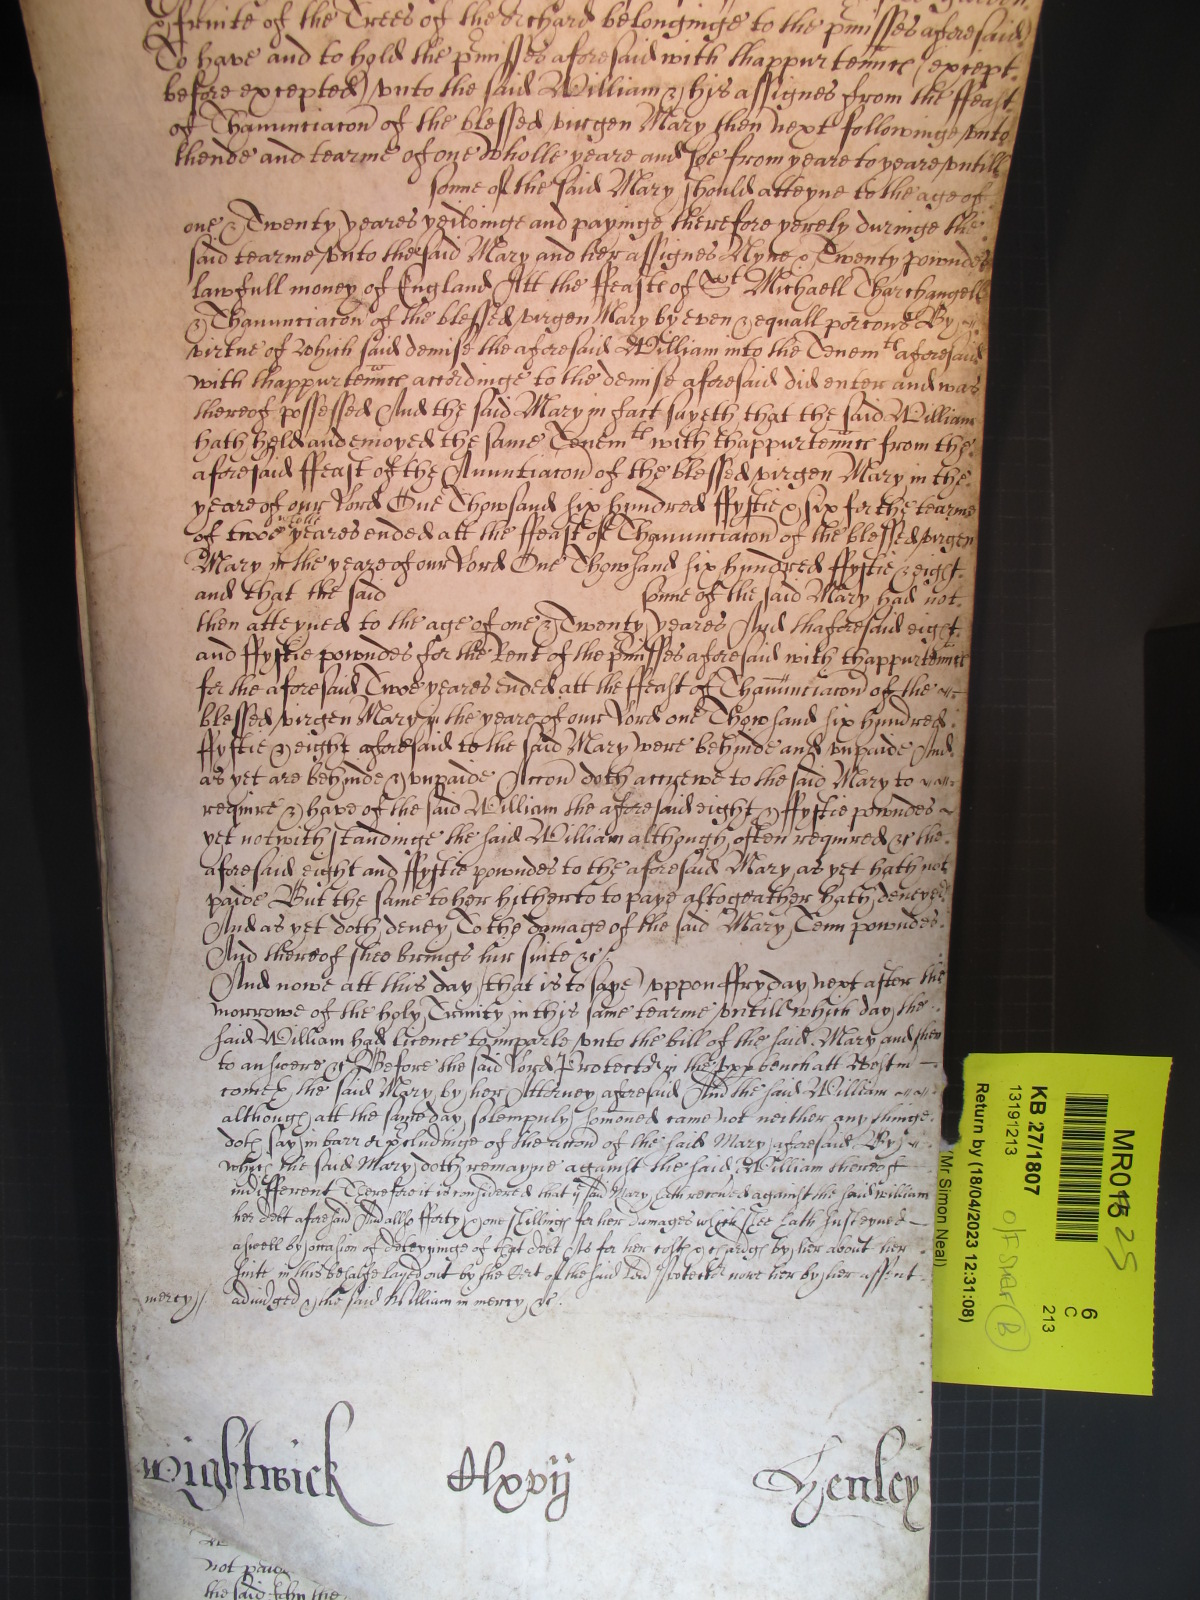 fruite of the Trees of the Orchard belonginge to the pmisses aforesaid
To have and to hold the pmisses aforesaid with thappurtennces (except
before excepted) vnto the said William & his assignes from the ffeast
of Thanunciacon of the blessed virgen Mary then next followinge vnto
thende and tearme of one wholle yeare and soe from yeare to yeare vntill
some of the said Mary should atteyne to the age of
one & Twenty yeares yeildinge and payinge therefore yerely duringe the
said tearme vnto the said Mary and her assignes Nyne & Twenty powndes
lawfull money of England Att the ffeaste of St Michaell Tharchangell
& Thanunciacon of the blessed virgen Mary by even & equall porcons By
virtue of which said demise the aforesaid William into the Tenemts aforesaid
with thappurtennces accordinge to the demise aforesaid did enter and was
thereof possessed And the said Mary in fact sayeth that the said William
hath held and enioyed the same Tenemts with thappurtennces from the
aforesaid ffeast of the Anuntiacon of the blessed virgen Mary in the
yeare of our Lord One Thowsand six hundred ffyftie & six for the tearme
of twoe wholle yeares ended att the ffeast of Thanunciacon of the blessed virgen
Mary in the yeare of our Lord One Thowsand six hundred ffyftie & eight
and that the said some of the said Mary had not
then atteyned to the age of one & Twenty yeares And thaforesaid eight
and ffyftie powndes for the Rent of the pmisses aforesaid with thappurtennces
for the aforesaid Twoe yeares ended att the ffeast of Thanunciacon of the
blessed virgen Mary in the yeare of our Lord one Thowsand six hundred
ffyftie & eight aforesaid to the said Mary were behinde and vnpaide And
as yet are behinde & vnpaide Accon doth accrewe to the said Mary to
require & have of the said William the aforesaid eight & ffyftie powndes
yet notwithstandinge the said William although often required &c the
aforesaid eight and ffyftie powndes to the aforesaid Mary as yet hath not
paide But the same to her hitherto to paye altogeather hath deneyed
And as yet doth deney To the damage of the said Mary Tenn powndes
And thereof shee brings her suite &c
And nowe att this day (that is to saye) vppon ffryday next after the
morrowe of the holy Trinity in this same tearme vntill which day the
said William had licence to imparle vnto the bill of the said Mary and then
to answere &c Before the said Lord Protector in the vpp bench att Westm
cometh the said Mary by her Attorney aforesaid And the said William
although att the same day solempnly somoned came not neither any thinge
doth say in barr or precludinge of the accon of the said Mary aforesaid By
which the said Mary doth remayne against the said William thereof
indifferent Therefore it is considered that ye said Mary hath recoued against the said William
her debt aforesaid And allsoe fforty & one shillings for her damages which shee hath susteyned
aswell by occasion of deteyninge of that debt As for her costs & chardges by her about her
suite in this behalfe layed out by the Cort of the said Lord Protector nowe her by her assent
adiudged & the said William in mercy &c
mercy
Wightwick Clxvij Henley
not paid
the said John the
MR016 25
6
C
213
KB 27/1807
13191213
Return by (18/04/2023 12:31:08)
(Mr Simon Neal)